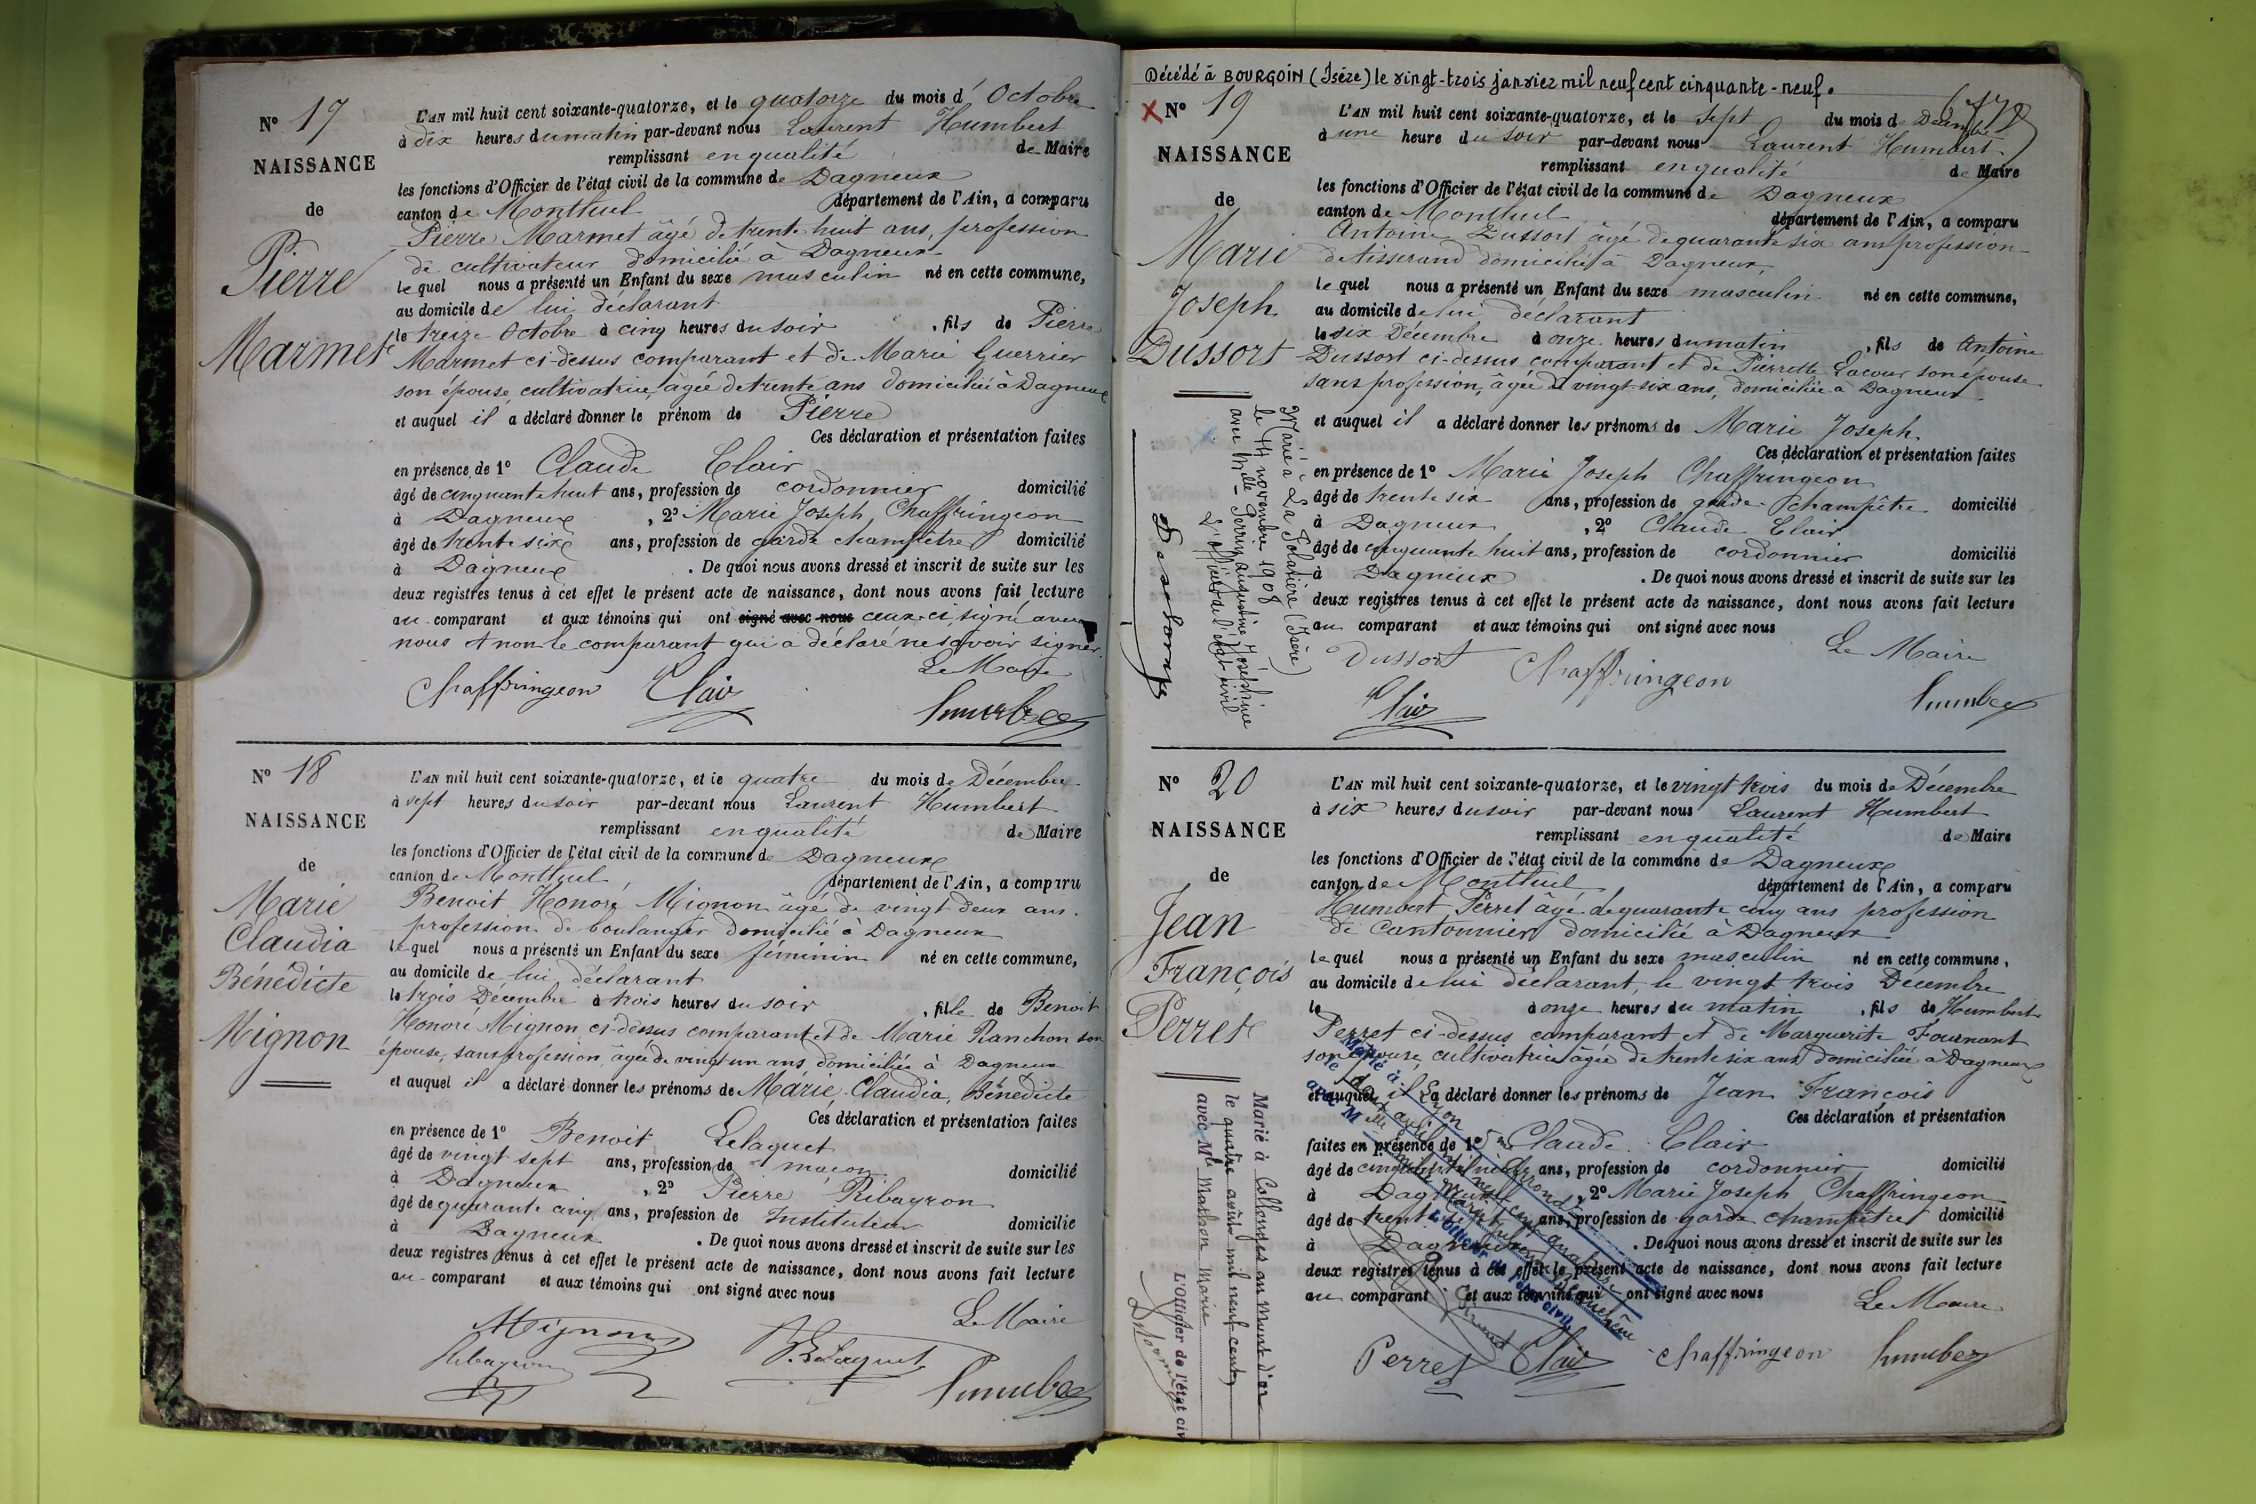 N° 17
NAISSANCE
de
Pierre
Marmet
L'AN mil huit cent soixante-quatorze, et le quatorze du mois d' Octobre
à dix heures du matin par-devant nous Laurent Humbert
remplissant en qualité de Maire
les fonctions d'Officier de l'état civil de la commune de Dagneux
canton de Montluel département de l'Ain, a comparu
Pierre Marmet âgé de trente huit ans, profession
de cultivateur domicilié à Dagneux
lequel nous a présenté un Enfant du sexe masculin né en cette commune,
au domicile de lui déclarant
le treize Octobre à cinq heures du soir, fils de Pierre
Marmet ci-dessus comparant et de Marie Guerrier
son épouse, cultivatrice, âgée de trente ans domiciliée à Dagneux
et auquel il a déclaré donner le prénom de Pierre
Ces déclaration et présentation faites
en présence de 1° Claude Clair
âgé de cinquante huit ans, profession de cordonnier domicilié
à Dagneux, 2° Marie Joseph Chaffringeon
âgé de trente six ans, profession de garde champêtre domicilié
à Dagneux. De quoi nous avons dressé et inscrit de suite sur les
deux registres tenus à cet effet le présent acte de naissance, dont nous avons fait lecture
au comparant et aux témoins qui ont signé avec nous ceux-ci signé avec
nous et non le comparant qui a déclaré ne savoir signer.
Le Maire
Chaffringeon Clair Humbert
N° 18
NAISSANCE
de
Marie
Claudia
Bénédicte
Mignon
L'AN mil huit cent soixante-quatorze, et le quatre du mois de Décembre
à sept heures du soir par-devant nous Laurent Humbert
remplissant en qualité de Maire
les fonctions d'Officier de l'état civil de la commune de Dagneux
canton de Montluel, département de l'Ain, a comparu
Benoit Honoré Mignon âgé de vingt deux ans.
profession de boulanger domicilié à Dagneux
lequel nous a présenté un Enfant du sexe féminin né en cette commune,
au domicile de lui déclarant
le trois Décembre à trois heures du soir, fille de Benoit
Honoré Mignon ci-dessus comparant et de Marie Planchon son
épouse, sans profession, âgée de vingt un ans, domiciliée à Dagneux
et auquel il a déclaré donner les prénoms de Marie, Claudia, Bénédicte
Ces déclaration et présentation faites
en présence de 1° Benoit Lelaquet
âgé de vingt sept ans, profession de maçon domicilié
à Dagneux, 2° Pierre Ribayron
âgé de quarante cinq ans, profession de Instituteur domicilié
à Dagneux. De quoi nous avons dressé et inscrit de suite sur les
deux registres tenus à cet effet le présent acte de naissance, dont nous avons fait lecture
au comparant et aux témoins qui ont signé avec nous
Le Maire
Mignon
Ribayron B. Lelaquet Humbert
Décédé à BOURGOIN (Isère) le vingt-trois janvier mil neuf cent cinquante-neuf.
X N° 19
NAISSANCE
de
Marie
Joseph
Dussort
L'AN mil huit cent soixante-quatorze, et le sept du mois de Décembre
à une heure du soir par-devant nous Laurent Humbert
remplissant en qualité de Maire
les fonctions d'Officier de l'état civil de la commune de Dagneux
canton de Montluel département de l'Ain, a comparu
Antoine Dussort âgé de quarante six ans profession
de tisserand domicilié à Dagneux,
lequel nous a présenté un Enfant du sexe masculin né en cette commune,
au domicile de lui déclarant
le six Décembre à onze heures du matin, fils de Antoine
Dussort ci-dessus comparant et de Pierrette Lacour son épouse
sans profession, âgée de vingt-six ans, domiciliée à Dagneux
et auquel il a déclaré donner les prénoms de Marie Joseph
Ces déclaration et présentation faites
en présence de 1° Marie Joseph Chaffringeon
âgé de trente six ans, profession de garde champêtre domicilié
à Dagneux, 2° Claude Clair
âgé de cinquante huit ans, profession de cordonnier domicilié
à Dagneux. De quoi nous avons dressé et inscrit de suite sur les
deux registres tenus à cet effet le présent acte de naissance, dont nous avons fait lecture
au comparant et aux témoins qui ont signé avec nous
Le Maire
Dussort Chaffringeon
Clair Humbert
Marié à La Folatière (Isère)
le 14 novembre 1908
avec Mlle Perrin Joséphine
L'officier de l'état civil
N° 20
NAISSANCE
de
Jean
François
Perret
L'AN mil huit cent soixante-quatorze, et le vingt trois du mois de Décembre
à six heures du soir par-devant nous Laurent Humbert
remplissant en qualité de Maire
les fonctions d'Officier de l'état civil de la commune de Dagneux
canton de Montluel, département de l'Ain, a comparu
Humbert Perret âgé de quarante cinq ans profession
de Cantonnier domicilié à Dagneux
lequel nous a présenté un Enfant du sexe masculin né en cette commune,
au domicile de lui déclarant, le vingt trois Décembre
le à onze heures du matin, fils de Humbert
Perret ci-dessus comparant et de Marguerite Fournant
son épouse, cultivatrice âgée de trente six ans domiciliée à Dagneux
et auquel il a déclaré donner les prénoms de Jean François
Ces déclaration et présentation
faites en présence de 1° Claude Clair
âgé de cinquante huit ans, profession de cordonnier domicilié
à Dagneux, 2° Marie Joseph Chaffringeon
âgé de trente ans, profession de garde champêtre domicilié
à Dagneux. De quoi nous avons dressé et inscrit de suite sur les
deux registres tenus à cet effet le présent acte de naissance, dont nous avons fait lecture
au comparant et aux témoins qui ont signé avec nous
Le Maire
Perret Clair Chaffringeon Humbert
Marié à Collonges au Mont d'or
le quatre août mil neuf cent
avec Mlle Mathon Marie
L'Officier de l'état civ
Marié à Lyon
avec Mlle
L'Officier de l'état civil,